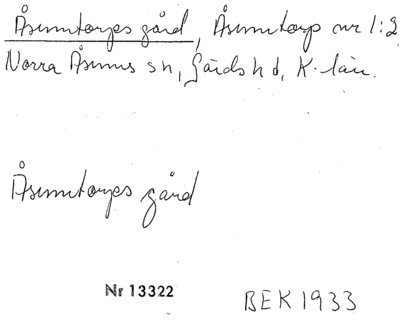 Åsumtorps gård, Åsumtorp nr 1:2
Norra Åsums sn, Gärds hd, K-län.
Åsumtorps gård
Nr 13322
BEK 1933